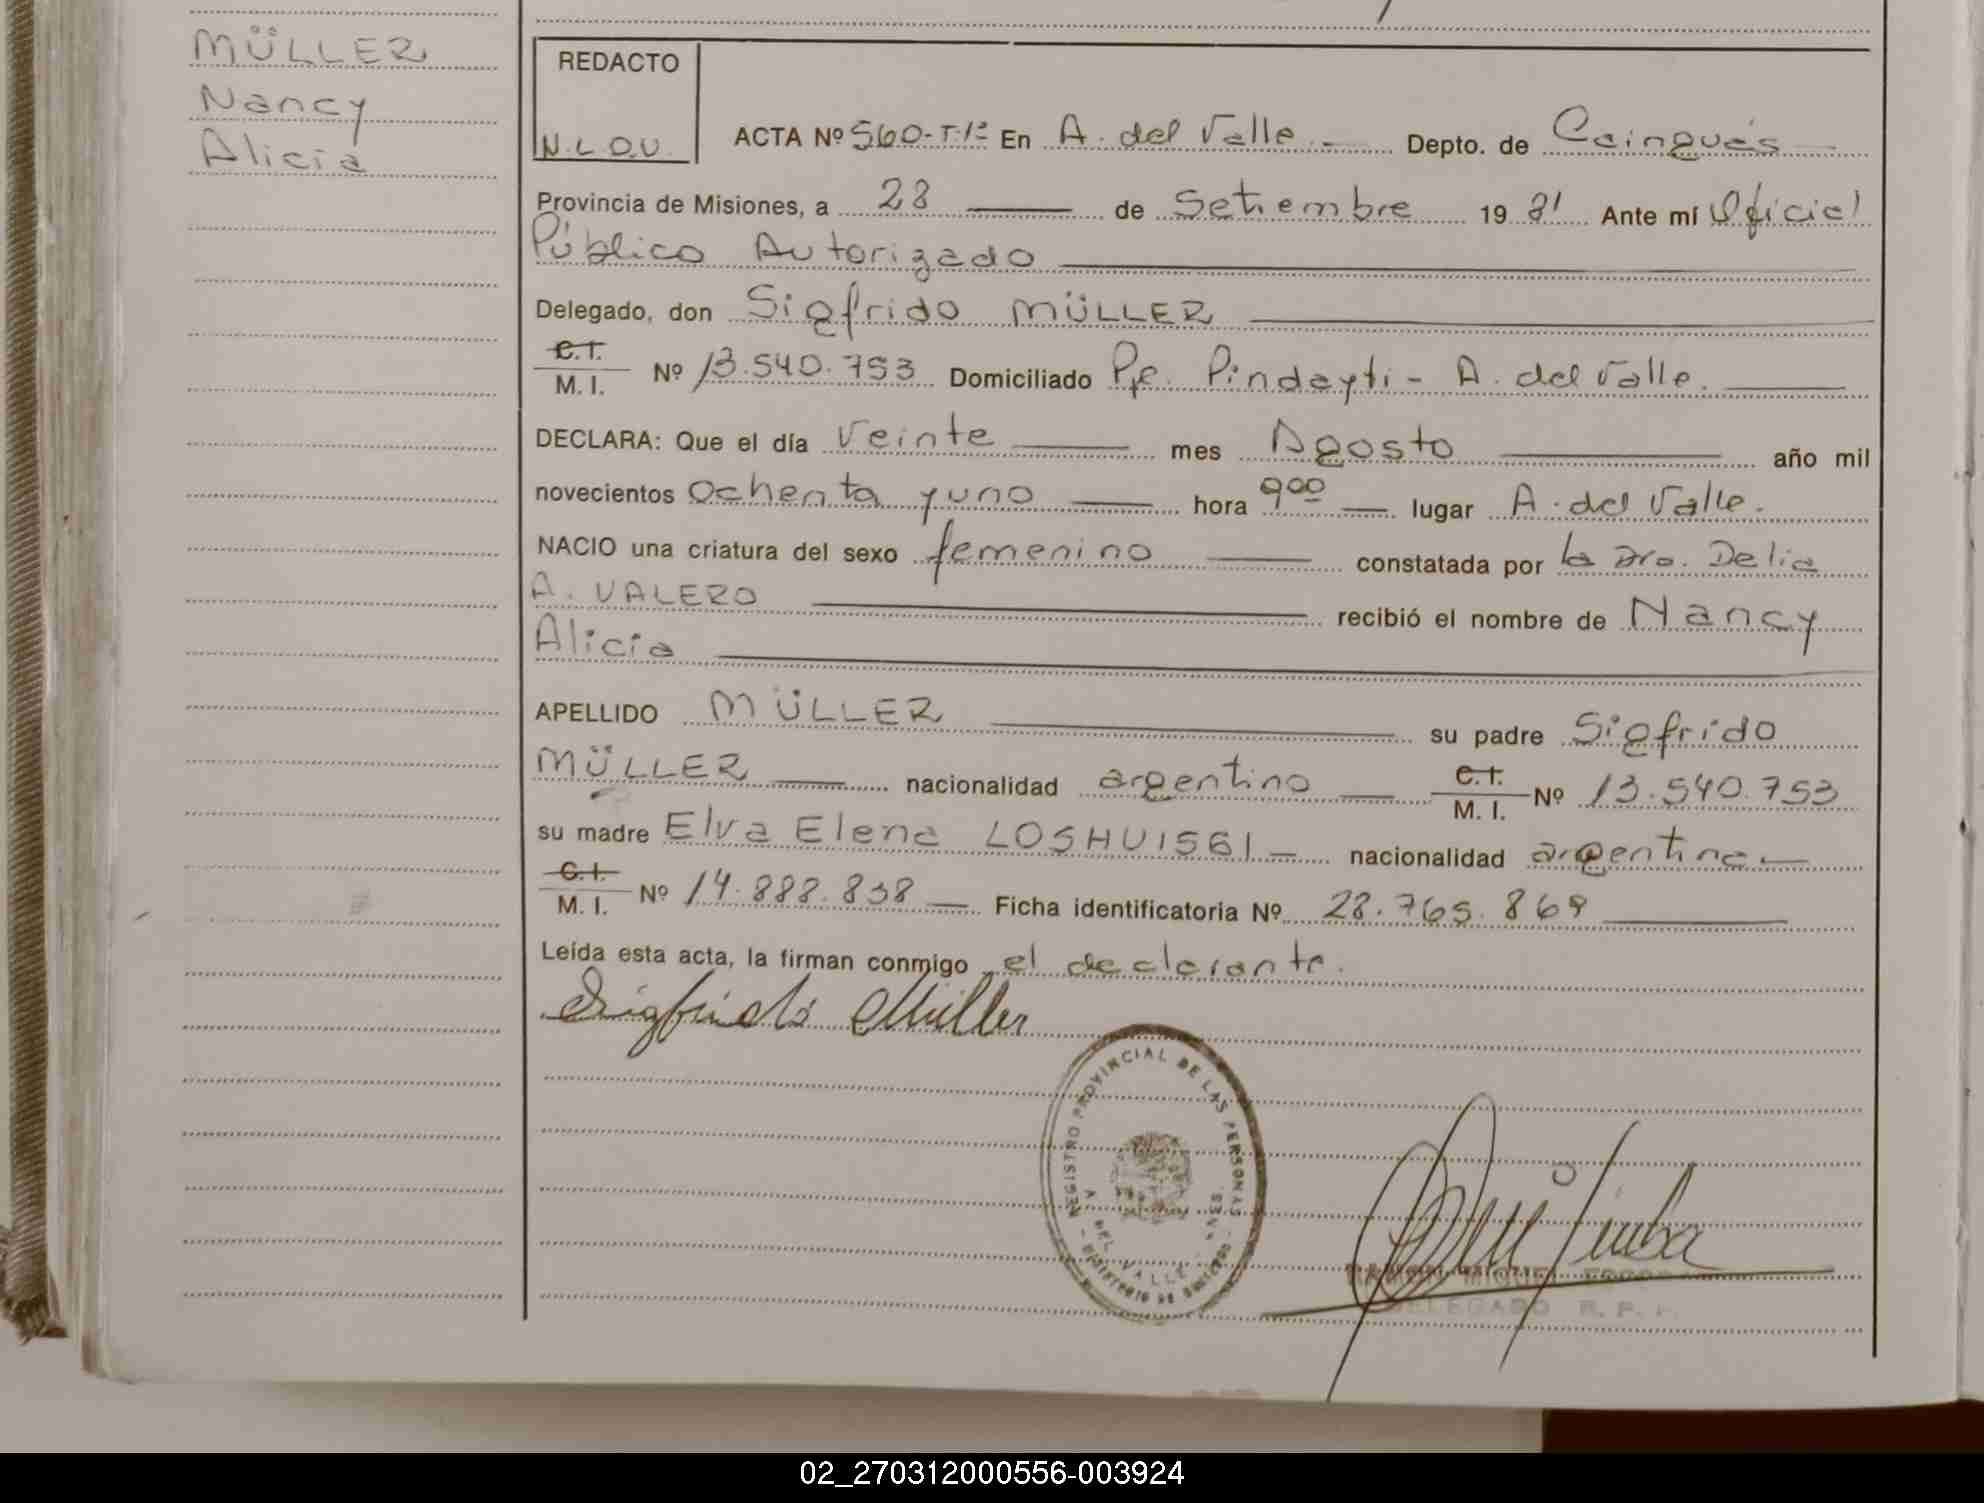 MÜLLER
Nancy
Alicia
REDACTO
N.L.O.U.
ACTA Nº 560-T.1º En A. del Valle.- Depto. de Cainguás
Provincia de Misiones, a 28 de Setiembre 1981 Ante mí Oficial
Público Autorizado
Delegado, don Sigfrido MÜLLER
C.I.
M. I. Nº 13.540.753 Domiciliado Pje. Pindayti - A. del Valle.
DECLARA: Que el día Veinte mes Agosto año mil
novecientos Ochenta y uno hora 900 lugar A. del Valle.
NACIO una criatura del sexo femenino constatada por la Dra. Delia
A. VALERO recibió el nombre de Nancy
Alicia
APELLIDO MÜLLER su padre Sigfrido
MÜLLER nacionalidad argentino C.I.
M. I. Nº 13.540.753
su madre Elva Elena LOSHUISGI - nacionalidad argentina
C.I.
M. I. Nº 14.888.838 Ficha identificatoria Nº 28.765.869
Leída esta acta, la firman conmigo el declarante.
Sigfrido Müller
REGISTRO PROVINCIAL DE LAS PERSONAS
A. DEL VALLE
RAMON MIQUEL
DELEGADO R. P. P.
02_270312000556-003924